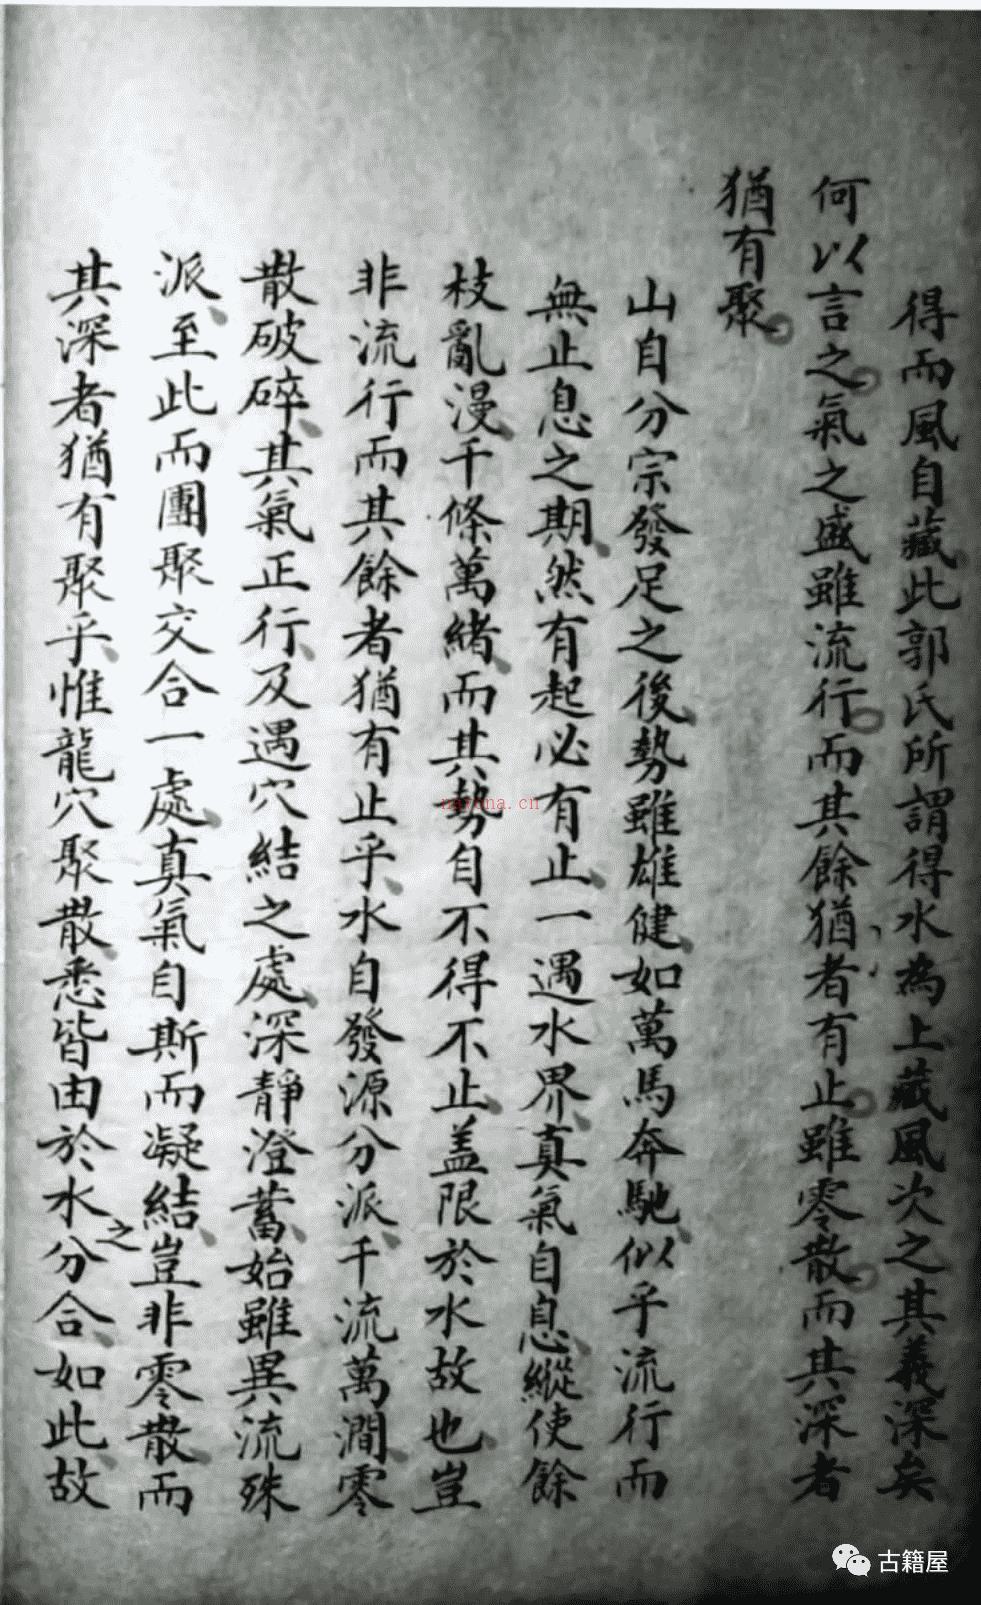 得而風自藏此郭氏所謂得水為上藏風次之其義深矣
何以言之氣之盛雖流行而其餘猶者有止雖零散而其深者
猶有聚
山自分宗發足之後勢雖雄健如萬馬奔馳似乎流行而
無止息之期然有起必有止一遇水界真氣自息縱使餘
枝亂漫千條萬緒而其勢自不得不止盖限於水故也豈
非流行而其餘者猶有止乎水自發源分派千流萬澗零
散破碎其氣正行及遇穴結之處深靜澄蓄始雖異流殊
派至此而團聚交合一處真氣自斯而凝結豈非零散而
其深者猶有聚乎惟龍穴聚散悉皆由於水之分合如此故
nayona.cn
古籍屋